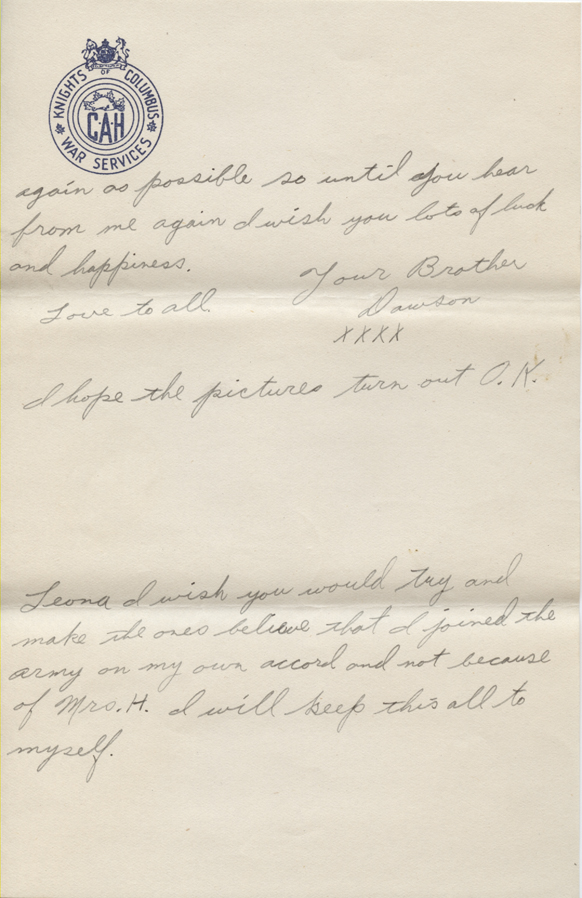 KNIGHTS OF COLUMBUS
CAH
WAR SERVICES
again as possible so until you hear
from me again I wish you lots of luck
and happiness.
Your Brother
Love to all.
Dawson
XXXX
I hope the pictures turn out O.K.
Leona I wish you would try and
make the ones believe that I joined the
army on my own accord and not because
of Mrs. H. I will keep this all to
myself.